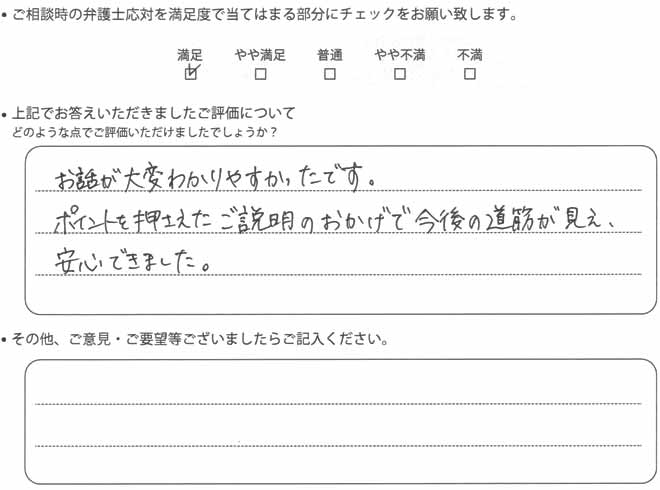 • ご相談時の弁護士応対を満足度で当てはまる部分にチェックをお願い致します。
満足 やや満足 普通 やや不満 不満
☑ ☐ ☐ ☐ ☐
• 上記でお答えいただきましたご評価について
どのような点でご評価いただけましたでしょうか？
お話が大変わかりやすかったです。
ポイントを押さえたご説明のおかげで今後の道筋が見え、
安心できました。
• その他、ご意見・ご要望等ございましたらご記入ください。